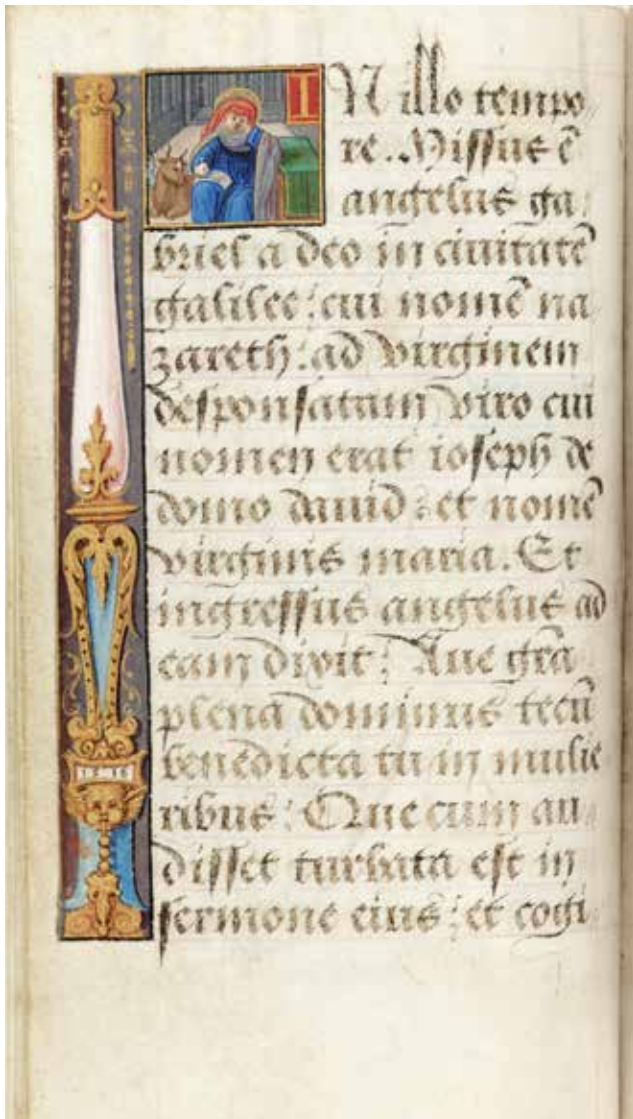 IN illo tempo
re. Missus ē
angelus ga
briel a deo in ciuitatē
galilee: cui nomē na
zareth: ad virginem
desponsatam viro cui
nomen erat ioseph de
domo dauid: et nomē
virginis maria. Et
ingressus angelus ad
eam dixit: Aue grā
plena dominus tecū
benedicta tu in mulie
ribus: Que cum au
disset turbata est in
sermone eius: et cogi
1516